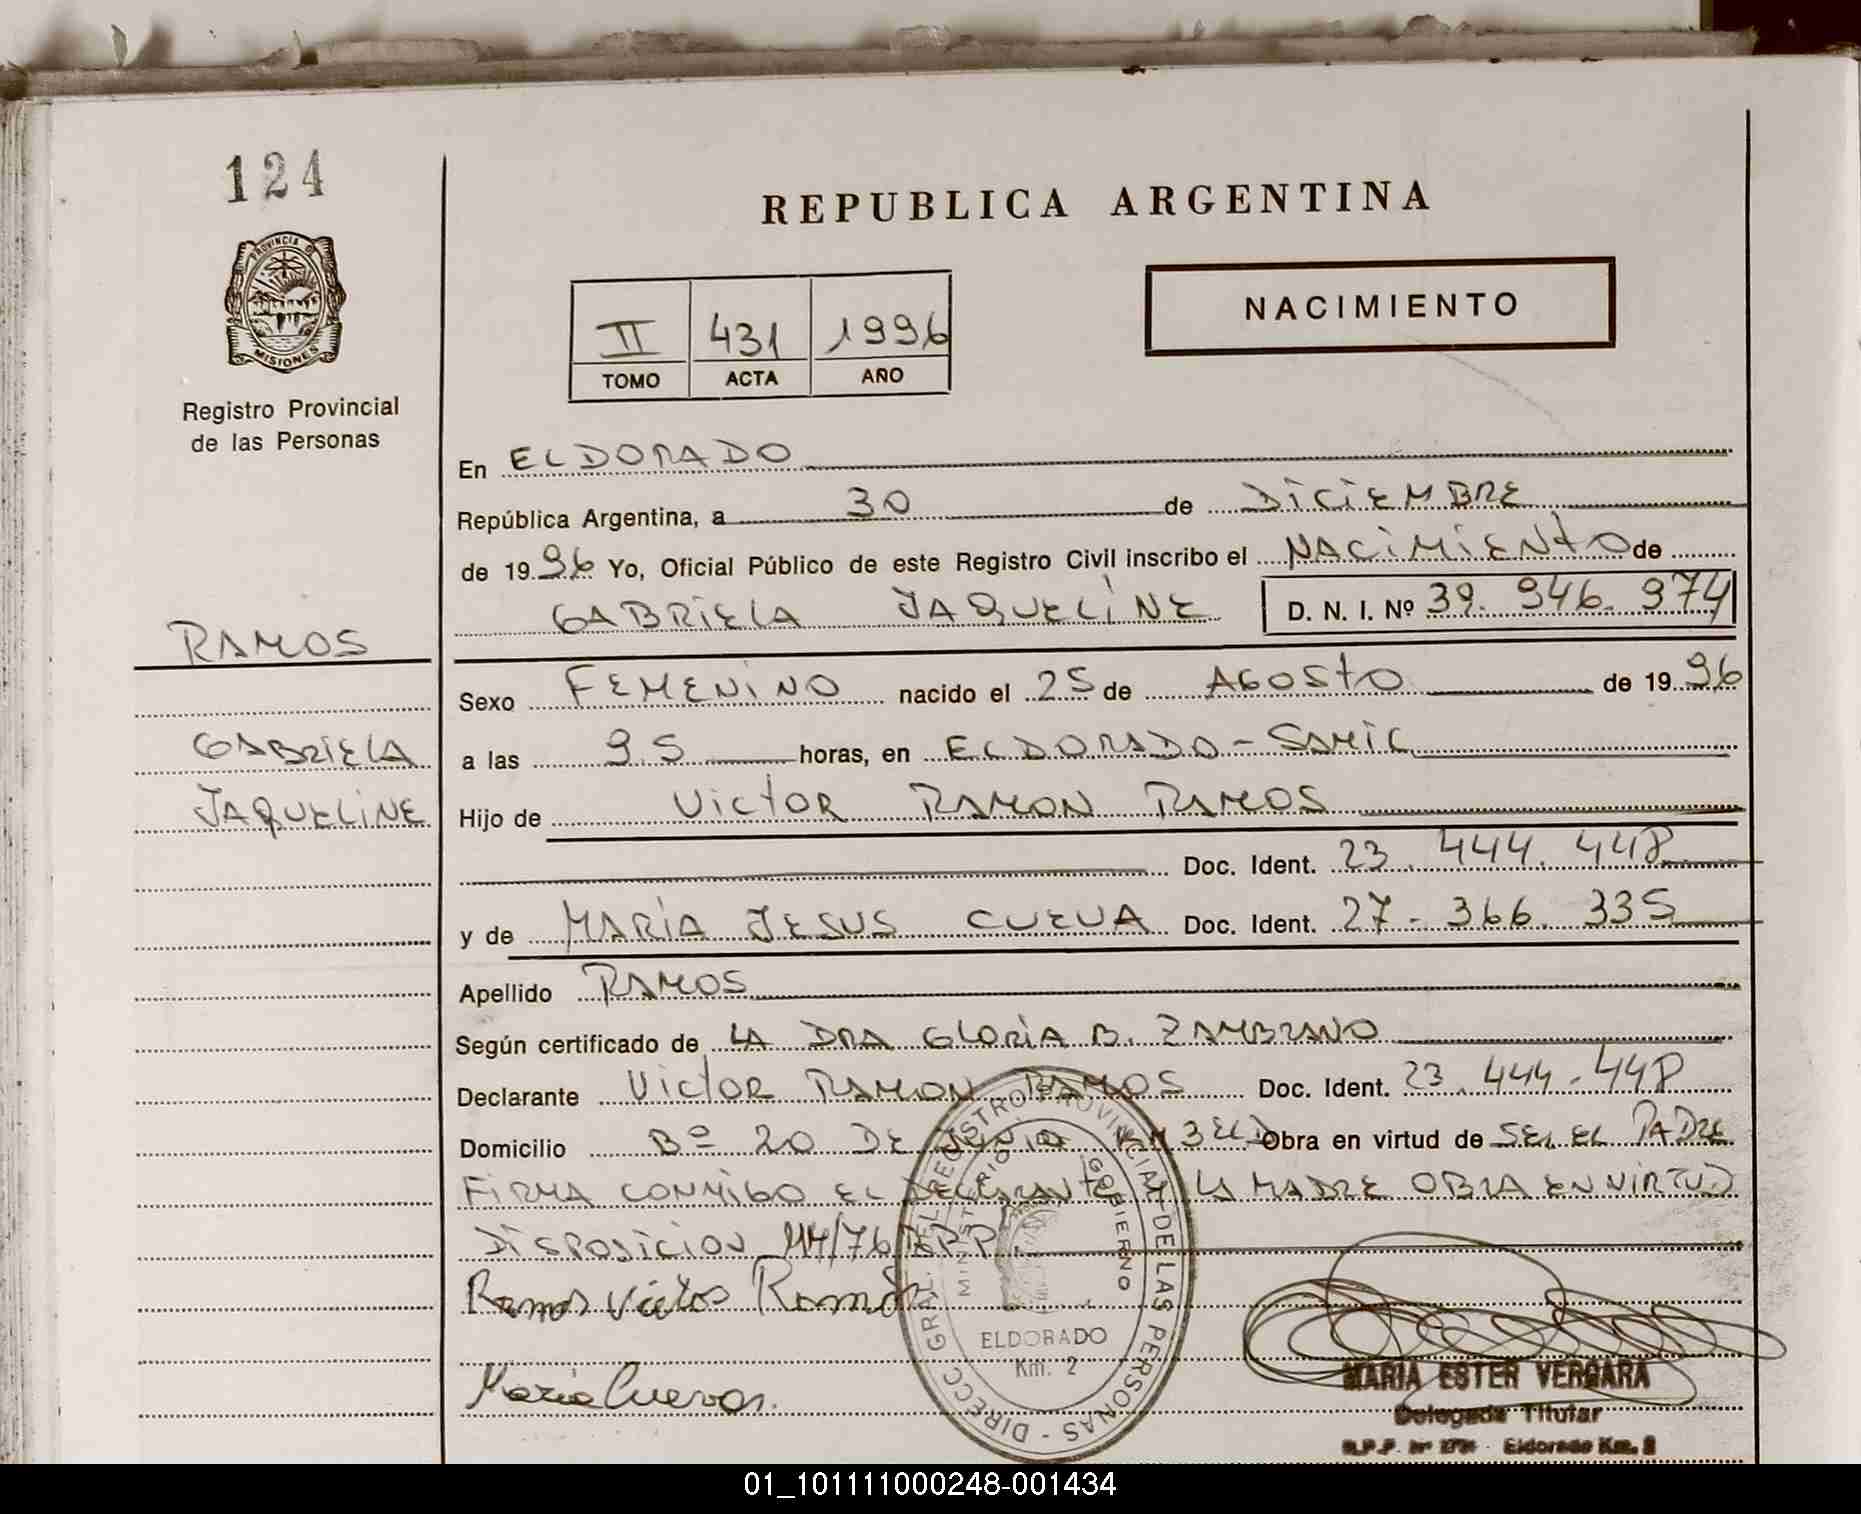 124
PROVINCIA DE
MISIONES
Registro Provincial
de las Personas
RAMOS
GABRIELA
JAQUELINE
REPUBLICA ARGENTINA
II 431 1996
TOMO ACTA AÑO
NACIMIENTO
En ELDORADO
República Argentina, a 30 de DICIEMBRE
de 1996 Yo, Oficial Público de este Registro Civil inscribo el NACIMIENTO de
GABRIELA JAQUELINE D. N. I. Nº 39.946.974
Sexo FEMENINO nacido el 25 de AGOSTO de 1996
a las 9.5 horas, en ELDORADO - SAMIC
Hijo de VICTOR RAMON RAMOS
Doc. Ident. 23.444.448
y de MARIA JESUS CUEVA Doc. Ident. 27-366.335
Apellido RAMOS
Según certificado de LA DRA GLORIA B. ZAMBRANO
Declarante VICTOR RAMON RAMOS Doc. Ident. 23.444.448
Domicilio Bº 20 DE JUNIO KM 3 ELD Obra en virtud de SER EL PADRE
FIRMA CONMIGO EL DECLARANTE Y LA MADRE OBRA EN VIRTUD
DISPOSICION 114/76 RPP.
Ramos Victor Ramón
Maria Cuevas.
DIRECC. GRAL. DEL REGISTRO PROVINCIAL DE LAS PERSONAS -
MINISTERIO GOBIERNO
ELDORADO
Km. 2
MARIA ESTER VERGARA
Delegada Titular
R.P.P. Nº Eldorado Km. 2
01_101111000248-001434